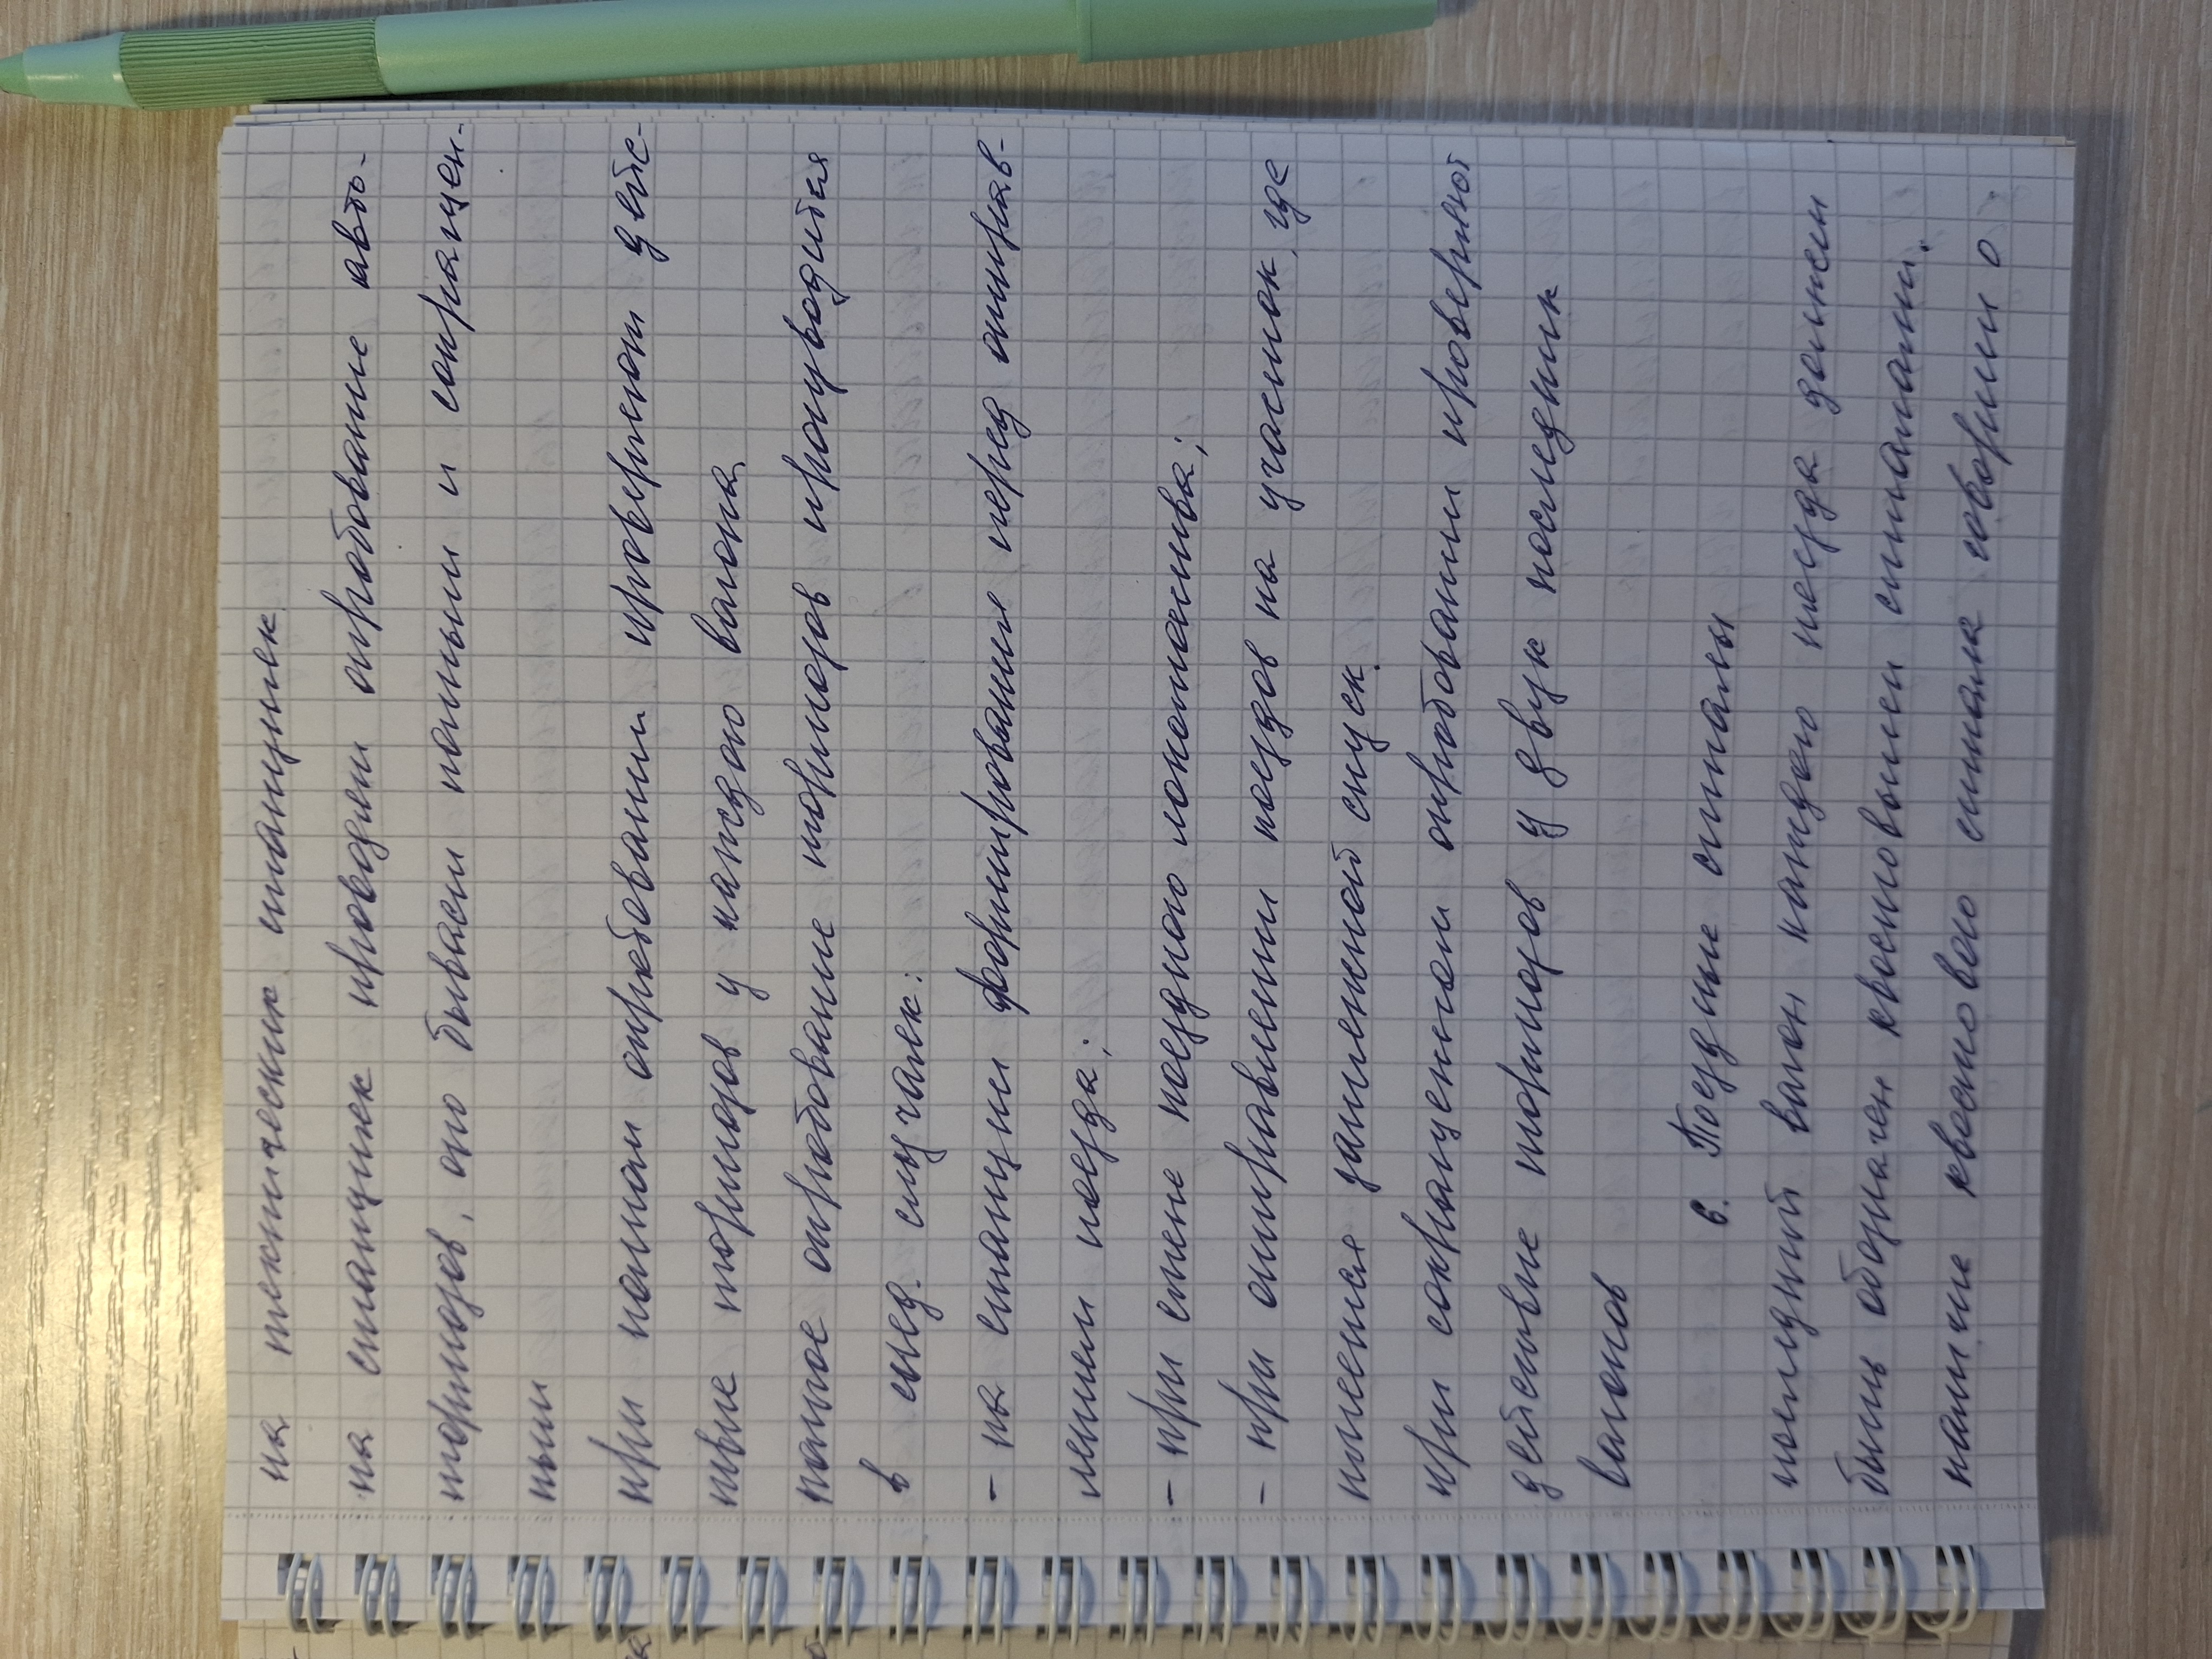 на технических станциях.
на станциях проводят опробование авто-
тормозов, оно бывает полным и сокращен-
ным
при полном опробовании проверяют дейс-
твие тормозов у каждого вагона
полное опробование тормозов производится
в след. случаях:
- на станции формирования перед отправ-
лением поезда;
- при смене поездного локомотива;
- при отправлении поездов на участок, где
имеется затяжной спуск.
при сокращенном опробовании проверяют
действие тормозов у двух последних
вагонов
6. Поездные сигналы
последний вагон каждого поезда должен
быть обозначен хвостовыми сигналами.
наличие хвостового сигнала говорит о